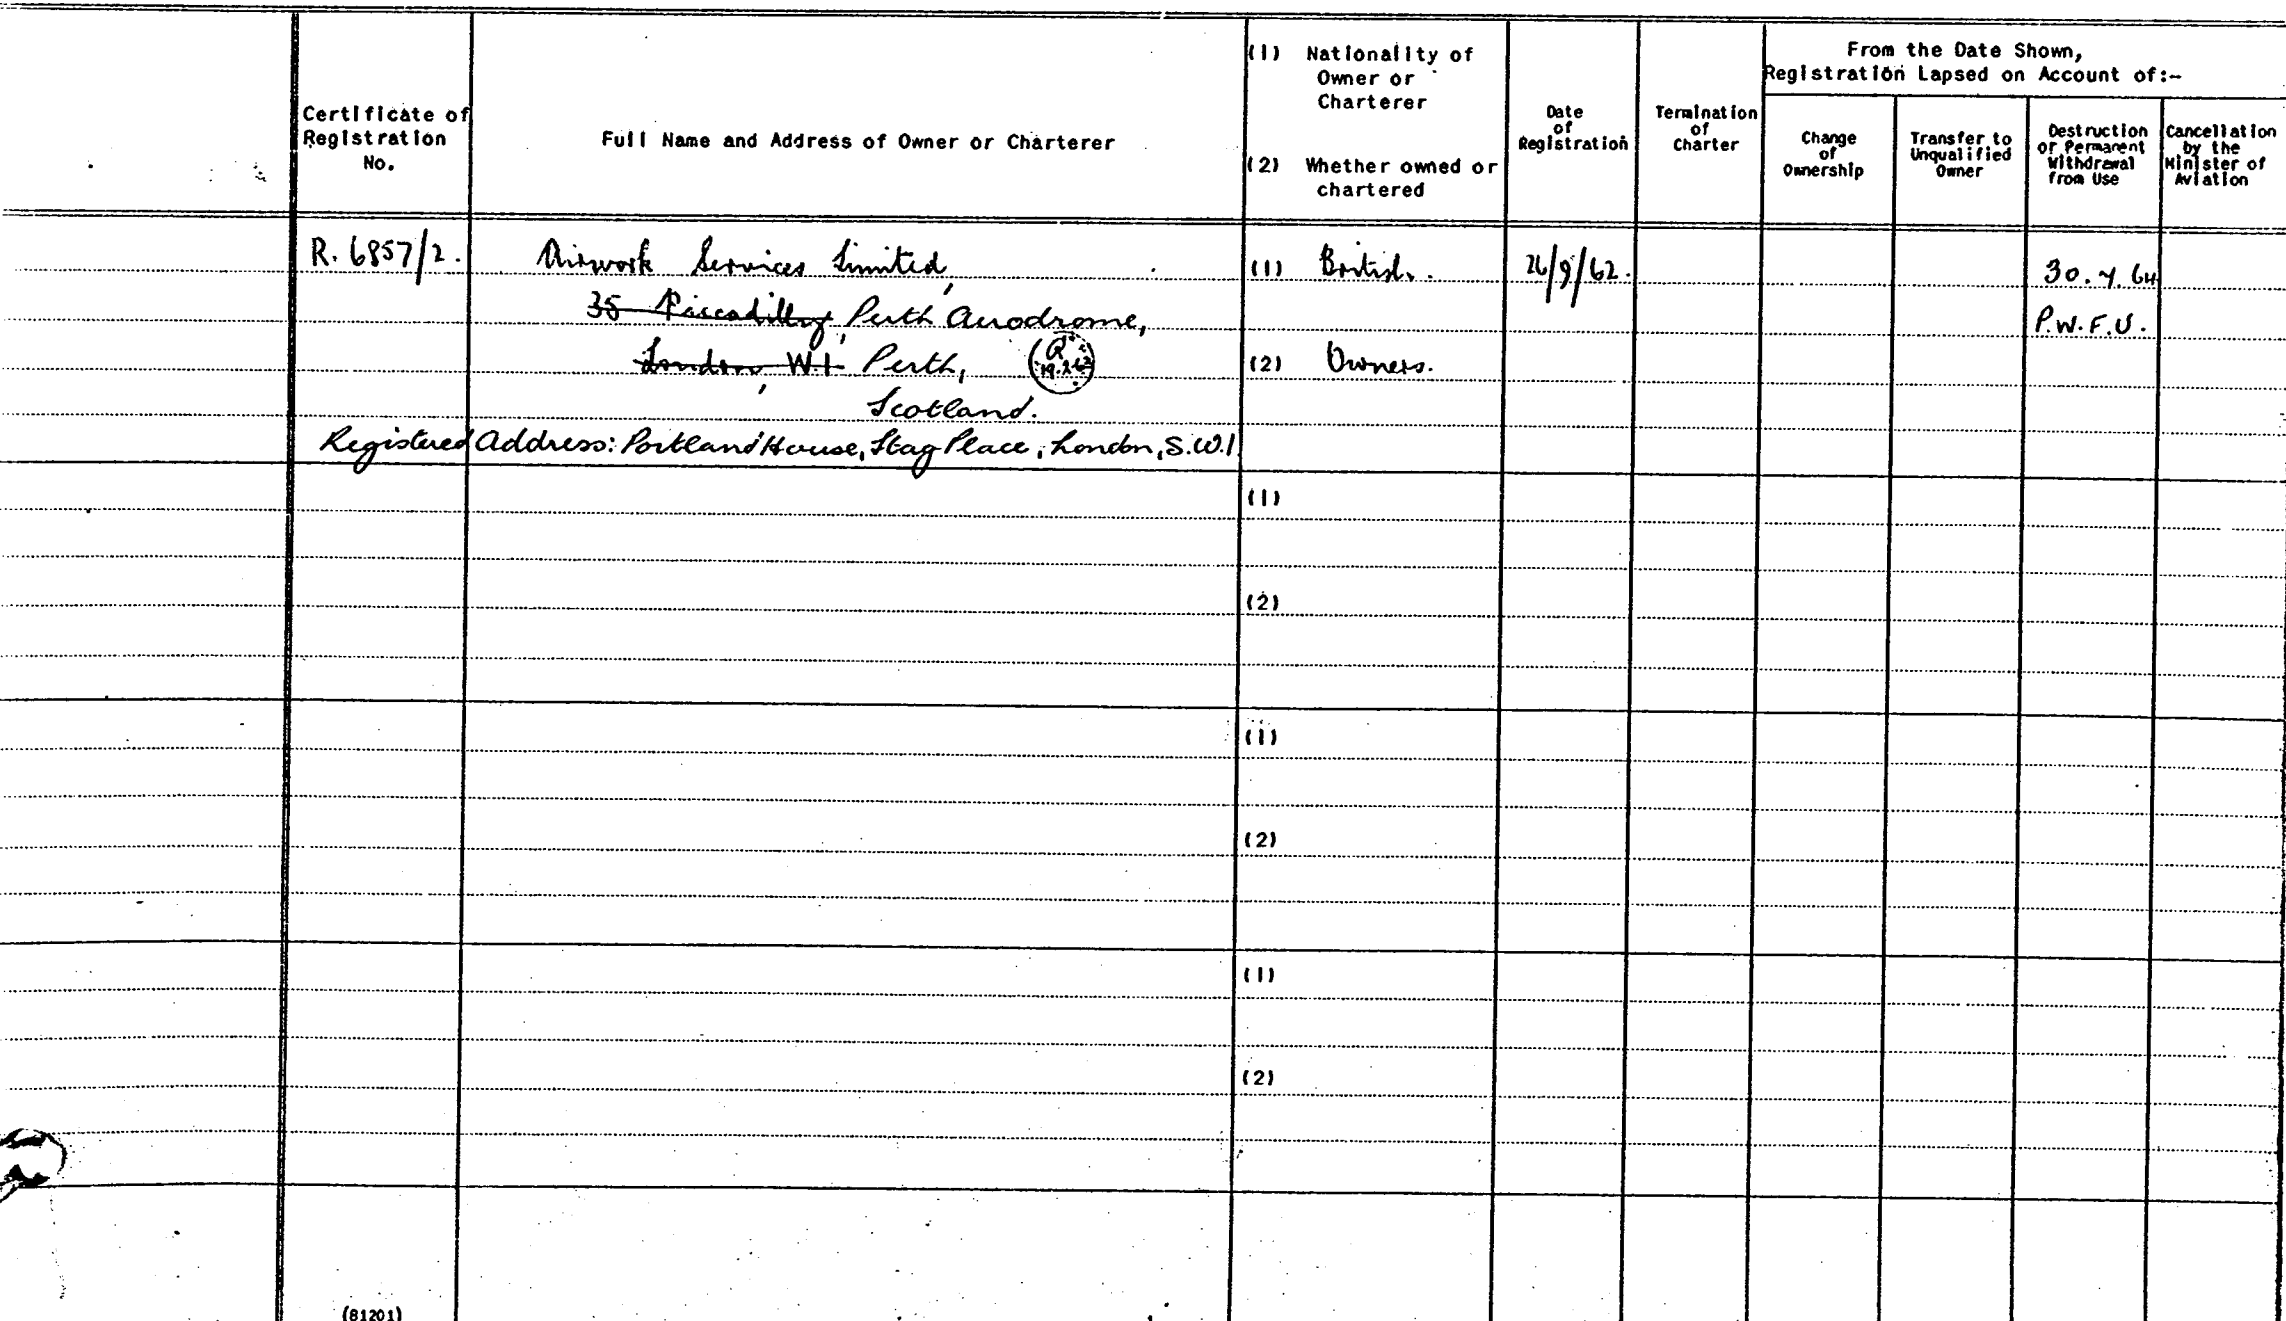 Certificate of
Registration
No.
Full Name and Address of Owner or Charterer
(1) Nationality of
Owner or
Charterer
(2) Whether owned or
chartered
Date
of
Registration
Termination
of
Charter
From the Date Shown,
Registration Lapsed on Account of:-
Change
of
Ownership
Transfer to
Unqualified
Owner
Destruction
or Permanent
Withdrawal
from Use
Cancellation
by the
Minister of
Aviation
R. 6857/2.
Airwork Services Limited,
35 Piccadilly, Perth Aerodrome,
London, W.1. Perth,
Scotland.
Registered Address: Portland House, Stag Place, London, S.W.1
(1) British.
(2) Owners.
26/9/62.
30.7.64
P.W.F.U.
(1)
(2)
(1)
(2)
(1)
(2)
(81201)